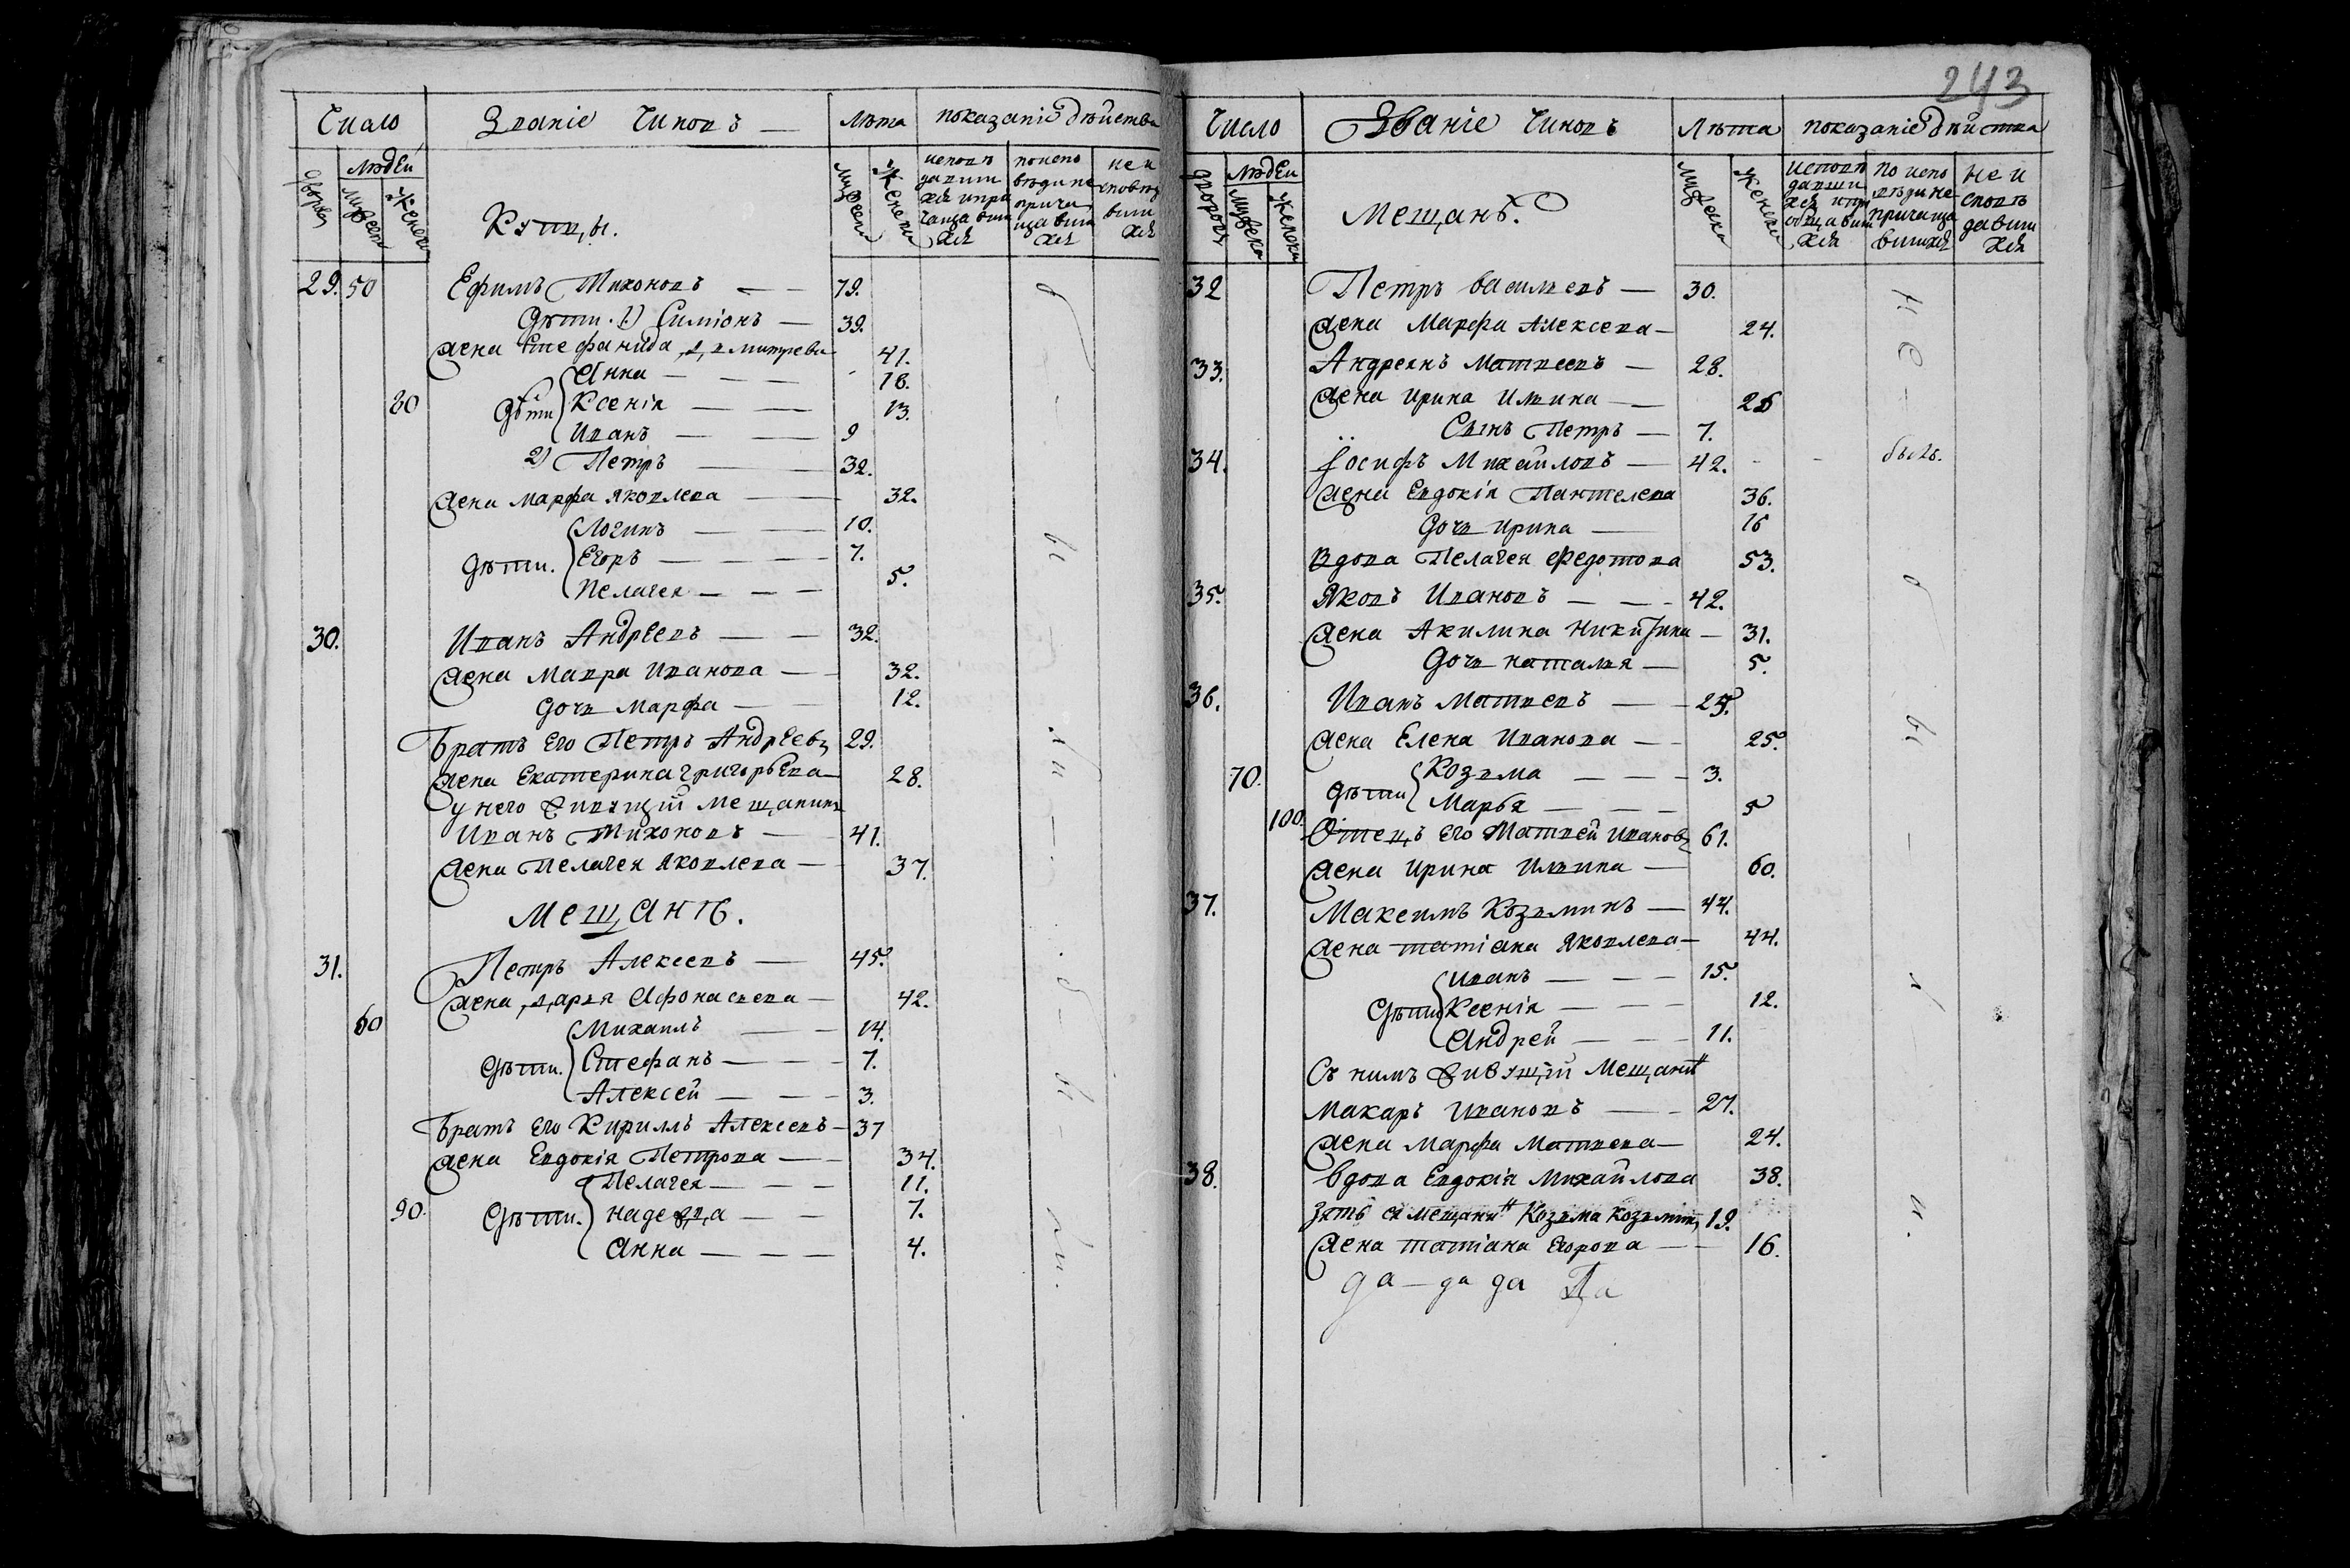 Число Званіе Чиновъ — Лѣта показаніе дѣйства
дворовъ
людей
мужеска
женска
Купцы.
мужеска
женска
исповѣ
давши
хся и при
чащавши
хся
по испо
вѣди не
прича
щавши
хся
не и
сповѣд
вши
хся
29. 50 Ефимъ Тихоновъ — — 79.
Дѣти. 1) Симіонъ — 39.
Жена Стефанида Дмитрева 41.
Анна — — — 18.
80 Дѣти Ксенія — — 13.
Иванъ — — 9
2) Петръ — — 32.
Жена Марфа Яковлева — — 32.
Логинъ — — 10.
Дѣти. Егоръ — — — 7.
Пелагея — — — 5.
30. Иванъ Андреевъ — — 32.
Жена Мавра Иванова — — 32.
Дочь Марфа — — 12.
Братъ Его Петръ Андреевъ 29.
Жена Екатерина григорьева — 28.
У него живущій мещанинъ
Иванъ Тихоновъ — 41.
Жена Пелагея Яковлева — 37.
Мещанъ.
31. Петръ Алексеевъ — 45.
Жена Дарья Афонасьева — 42.
60 Михаилъ — — 14.
Дѣти. Стефанъ — — — 7.
Алексей — — — 3.
Братъ Его Кириллъ Алексеевъ — 37
Жена Евдокія Петрова — 34.
Пелагея — — — 11.
90. Дѣти. Надежда — — 7.
Анна — — — 4.
243
Число Званіе Чиновъ Лѣта показаніе дѣйства
дворовъ
людей
мужеска
женска
Мещанъ.
мужеска
женска
исповѣ
давши
хся и при
общавши
хся
по испо
вѣди не
причаща
вшихся
не и
сповѣ
давши
хся
32 Петръ Васильевъ — 30.
Жена Марфа Алексеева — 24.
33. Андреянъ Матвеевъ — 28.
Жена Ирина Ильина — 26
Сынъ Петръ — 7.
34. Іосифъ Михайловъ — 42. - - былъ.
Жена Евдокія Пантелева 36.
Дочь Ирина — 16
Вдова Пелагея Федотова 53.
35. Яковъ Ивановъ — — - 42.
Жена Акилина Никитина — 31.
Дочь Наталья — 5.
36. Иванъ Матвеевъ — - 25.
Жена Елена Иванова — - 25.
70. Козьма — — - 3.
Дѣти
100. Марья — — — 5
Отецъ Его Матвей Ивановъ 61.
Жена Ирина Ильина — 60.
37. Максимъ Козьминъ — 44.
Жена Татіана Яковлева — 44.
Иванъ — — — 15.
Дѣти Ксенія — — — 12.
Андрей — — - 11.
Съ нимъ живущій Мещанинъ
Макаръ Ивановъ — - 27.
Жена Марфа Матвеева — 24.
38. Вдова Евдокія Михайлова 38.
Зять ея мещанинъ Козьма Козьминъ 19.
Жена Татіана Егорова — — 16.
да — да да Да